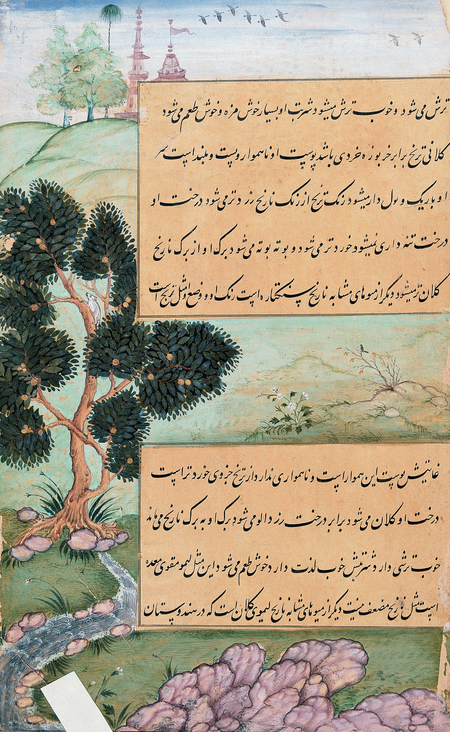 ترش می شود و خوب ترش میشود شربت او بسیار خوش مزه و خوش طعم می شود
کلانی ترنج برابر خربوزه خردی باشد پوست او ناهموار و پست و بلند است سر
او باریک و پول دار میشود رنک ترنج از رنک نارنج زرد تر می شود درخت او
درخت تنه داری نمیشود خورد تر می شود و بوته بوته می شود برک او از برک نارنج
کلان تر میشود دیگر از میوهای مشابه نارنج سنکتره است رنک او و وضع او مثل ترنج است
غایتش پوست این هموار است و ناهمواری ندارد از ترنج جزوی خورد تر است
درخت او کلان می شود برابر درخت زرد الو می شود برک او به برک نارنج می ماند
خوب ترشی دارد شربتش خوب لذت دار و خوش طعم می شود این مثل لیمو مقوی معده
است مثل نارنج مضعف نیست دیگر از میوهای مشابه نارنج لیموی کلان است که در هندوستان